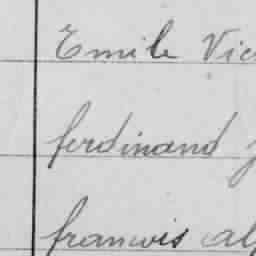 Emile Vic
ferdinand j
francois alf